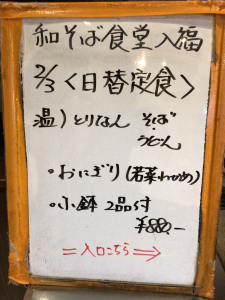 和そば食堂入福
2/3<日替定食>
温)とりなん そば
・うどん
・おにぎり(若菜わかめ)
・小鉢 2品付
¥880.-
=入口こちら⇒